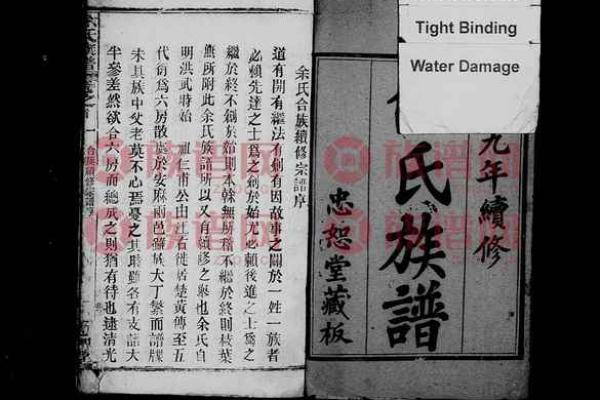 Tight Binding
Water Damage
九年續修
氏族譜
忠恕堂藏板
余氏合族續修宗譜序
道有開有繼法有創有因故事之關於一姓一族者
必賴先達之士爲之創於始尤必賴後進之士爲之
繼於終不創於始則本榦無所稽不繼於終則枝葉
無所附此余氏族譜所以又有續修之舉也余氏自
明洪武時始祖仁甫公由江右徙居楚黃傳至五
代衍爲六房散處於安麻兩邑雖族大丁繁而譜牒
未具族中父老莫不心焉憂之其
半參差然欲合六房而總成之則猶有待也逮清光